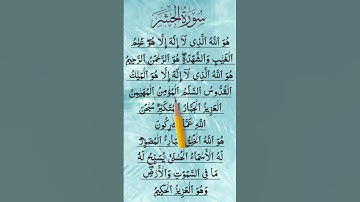 سُورَةُ الحَشر
هُوَ ٱللَّهُ ٱلَّذِي لَآ إِلَٰهَ إِلَّا هُوَ ۖ عَٰلِمُ
ٱلْغَيْبِ وَٱلشَّهَٰدَةِ ۖ هُوَ ٱلرَّحْمَٰنُ ٱلرَّحِيمُ
هُوَ ٱللَّهُ ٱلَّذِي لَآ إِلَٰهَ إِلَّا هُوَ ٱلْمَلِكُ
ٱلْقُدُّوسُ ٱلسَّلَٰمُ ٱلْمُؤْمِنُ ٱلْمُهَيْمِنُ
ٱلْعَزِيزُ ٱلْجَبَّارُ ٱلْمُتَكَبِّرُ ۚ سُبْحَٰنَ
ٱللَّهِ عَمَّا يُشْرِكُونَ
هُوَ ٱللَّهُ ٱلْخَٰلِقُ ٱلْبَارِئُ ٱلْمُصَوِّرُ ۖ
لَهُ ٱلْأَسْمَآءُ ٱلْحُسْنَىٰ ۚ يُسَبِّحُ لَهُ
مَا فِي ٱلسَّمَٰوَٰتِ وَٱلْأَرْضِ ۖ
وَهُوَ ٱلْعَزِيزُ ٱلْحَكِيمُ